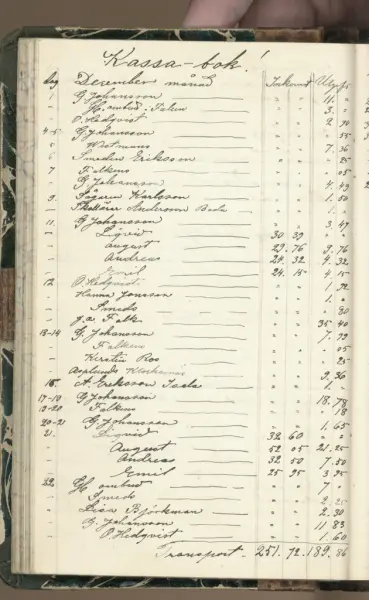 Kassa-bok!
Dag December månad Inkomst Utgift
1 G Johansson " " 11. "
" Hj. ombud. Falun " " 3. "
" P. Hedqvist " " 2 70
4-5 G Johansson " " " 55
5 Westmans " " 7. 36
6 Smeden Eriksson " " " 25
7 Falkens " " " 05
G Johansson " " 4. 49
9. Karlsson " " 1. 50
Andersson " " 1. "
11 G Johansson " " 3. 47
Sigrid 30 39
August 29. 76 9. 76
Andreas 24. 32 4. 32
Emil 24. 15 4. 15
12 P. Hedqvist " " 1. 92
Hanna Jonsson " " 1. "
Smeds " " " 30
J. A. Falk " " 35 40
13-14 G. Johansson " " 7. 72
Falkens " " " 05
Kerstin Ros " " " 25
Asplunds " " 9. 36
16. A. Eriksson " " 1. "
17-19 G Johansson " " 18. 78
19-20 Falkens " " " 18
20-21 G. Johansson " " 1. 65
21. Sigrid 32 60 " "
August 52 05 21. 25
Andreas 32 50 7. 50
Emil 25 95 3. 95
22. Hj ombud " " 7 "
Smeds " " 2. 25
Lisa Björkman " " 2. 30
G. Johansson " " 11 83
P. Hedqvist " " 1. 60
Transport. 251. 72. 189. 86